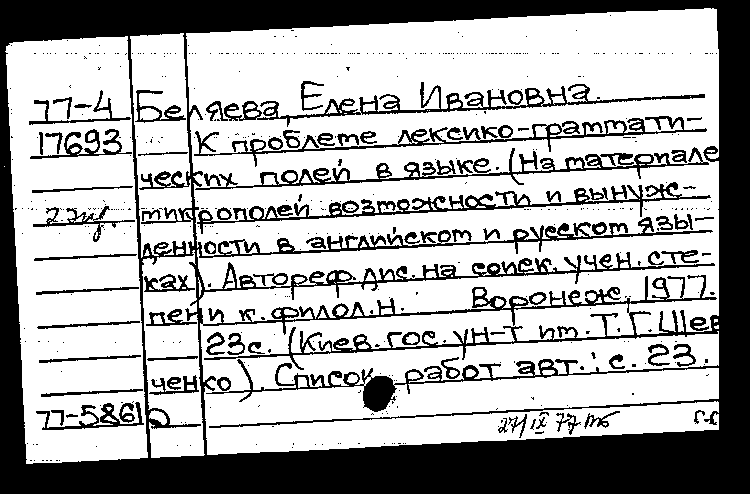 77-4 Беляева, Елена Ивановна.
17693 К проблеме лексико-граммати-
ческих полей в языке. (На материале
2 экз. микрополей возможности и вынуж-
денности в английском и русском язы-
ках). Автореф. дис. на соиск. учен. сте-
пени к. филол. н. Воронеж, 1977.
23с. (Киев. гос. ун-т им. Т. Г. Шев
ченко). Список работ авт.: с. 23.
77-5861
27/IX 77